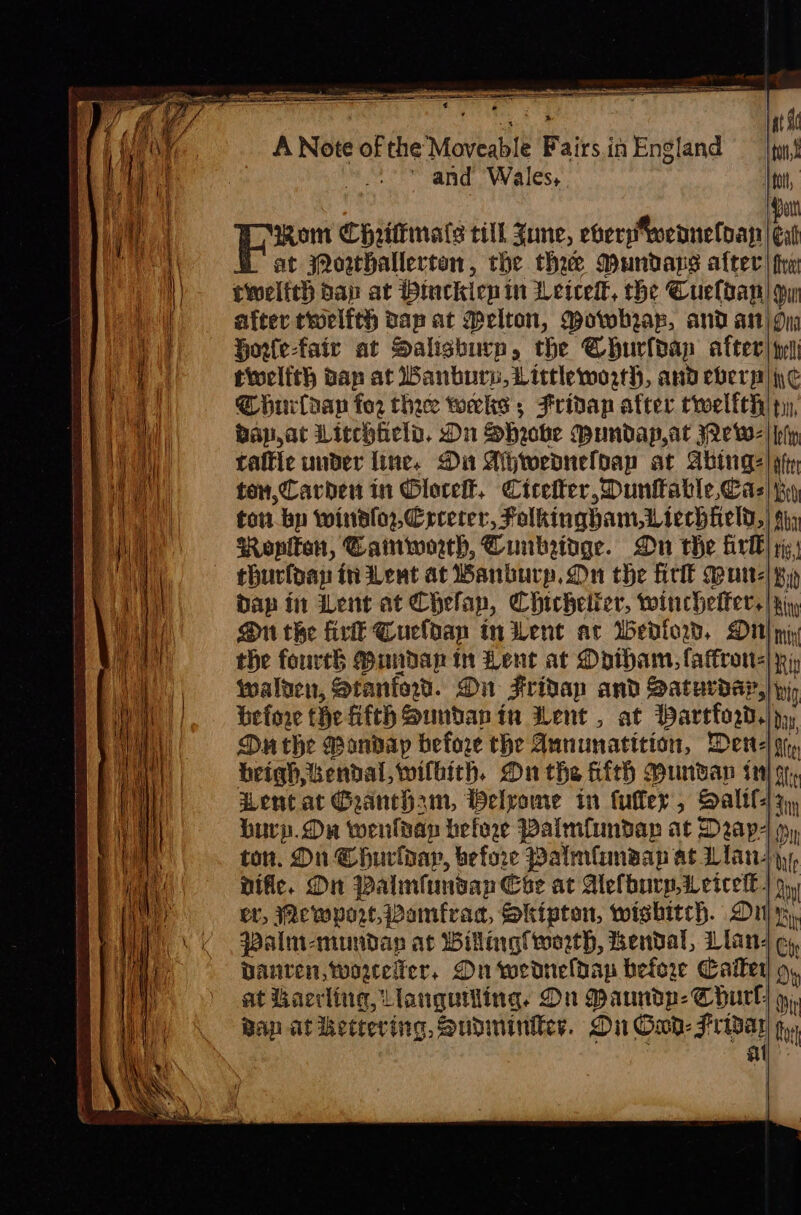 A Note of the Moveable Fairs in England
and Wales.
FRom Chriſtmaſs till June, every wedneſday
at Northallerton, the three Mundays after
twelfth day at Hinckley in Leiceſt, the Tueſday
after twelfth day at Melton, Mowbray, and an
horſe-fair at Salisbury, the Thurſday after
twelfth day at Banbury, Littleworth, and every
Thurſday for three weeks; Friday after twelfth
day, at Litchfield. On Shrove Munday, at New-
caſtle under line. On Aſhwedneſday at Abing-
ton, Carden in Gloceſt, Ciceſter, Dunſtable, Ea-
ton by windſor, Exceter, Folkingham, Liechfield,
Royſton, Tamworth, Tunbridge. On the firſt
thurſday in Lent at Banbury. On the firſt Mun-
day in Lent at Cheſay, Chicheſter, wincheſter.
On the firſt Tueſday in Lent at Bedford. On
the fourth Munday in Lent at Odiham, ſaffron-
walden, Stanford. On Friday and Saturday,
before the fifth Sunday in Lent, at Hartford.
On the Monday before the Annunatition, Den-
beigh, Kendal, wiſbith. On the fifth Munday in
Lent at Grantham, Helxome in ſuſſex, Saliſ-
bury. On wenſday before Palmſunday at Dray-
ton. On Thurſday, before Palmſunday at Llan-
diſſe. On Palmſunday Eve at Aleſbury, Leiceſt-
er, Newport, Pomfract, Skipton, wisbitch. On
Palm-munday at Billingſworth, Kendal, Llan-
dauren, worceſter. On wedneſday before Eaſter
at Kaerling, Llanguilling. On Maundy-Thurſ-
day at Kettering, Sudminſter. On Good-Friday
at